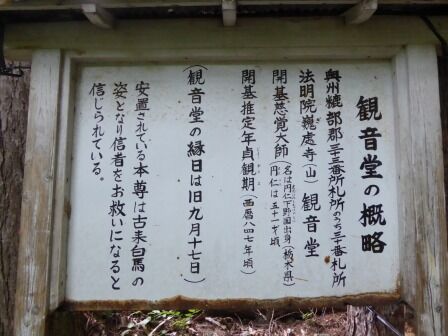 観音堂の概略
奥州糠部郡三十三番所札所のうち三十番札所
法明院巍處寺(山)観音堂
開基慈覚大師(名は円仁下野国出身(栃木県)円仁は五十一才頃)
開基推定年貞観期(西暦八四七年頃)
(観音堂の縁日は旧九月十七日)
安置されている本尊は古来白馬の
姿となり信者をお救いになると
信じられている。